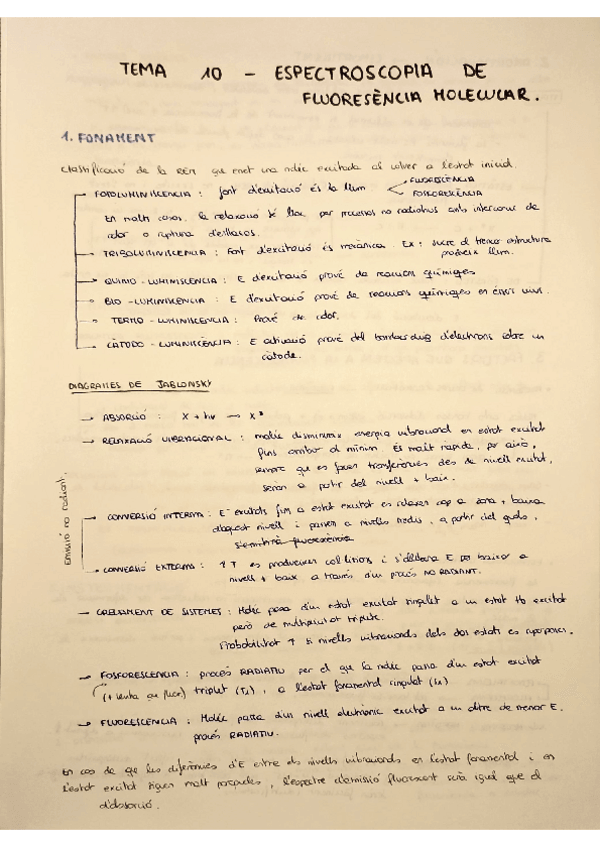 TEMA 10 - ESPECTROSCOPIA DE
FLUORESÈNCIA MOLECULAR.
1. FONAMENT
Classificació de la REM que emet una molèc excitada al volver a l'estat inicial.
FOTOLUMINISCENCIA : font d'excitació és la llum
FLUORESCÈNCIA
FOSFORESCÈNCIA
En molts casos, la relaxació té lloc per processos no radiatius amb intercanvi de
calor o ruptura d'enllaços.
TRIBOLUMINISCENCIA : Font d'excitació és mecànica. Ex : sucre al trencar estructura
produeix llum.
QUIMIO-LUMINISCENCIA : E d'excitació prové de reaccions químiques
BIO-LUMINISCENCIA : E d'excitació prové de reaccions químiques en éssers vius.
TERMO-LUMINISCENCIA : Prové de calor.
CÀTODO-LUMINISCÈNCIA : E activació prové del bombardeig d'electrons sobre un
càtode.
DIAGRAMES DE JABLONSKY
→ ABSORCIÓ : X + hv → X*
→ RELAXACIÓ VIBRACIONAL : molèc disminueix energia vibracional en estat excitat
fins arribar al mínim. És molt ràpida, per això,
sempre que es facin transferències des de nivell excitat,
seran a partir del nivell + baix.
Emissió no radiant.
→ CONVERSIÓ INTERNA : E⁻ excitats fins a estat excitat es relaxen cap a zona + baixa
d'aquest nivell i passen a nivells , a partir del qual,
fluorescència
→ CONVERSIÓ EXTERNA : ↑T es produeixen col·lisions i s'allibera E per baixar a
nivell + baix a través d'un procés NO RADIANT.
→ CREUAMENT DE SISTEMES : Molèc passa d'un estat excitat singulet a un estat tb excitat
però de multiplicitat triplete.
Probabilitat ↑ si nivells vibracionals dels dos estats es superposen.
→ FOSFORESCENCIA : procés RADIATIU per el qual la molèc passa d'un estat excitat
(+ lenta que fluor) triplet (T₁), a l'estat fonamental singulet (S₀)
→ FLUORESCENCIA : Molèc passa d'un nivell electrònic excitat a un altre de menor E.
procés RADIATIU.
En cas de que les diferències d'E entre els nivells vibracionals en l'estat fonamental i en
l'estat excitat siguen molt paregudes, l'espectre d'emissió fluorescent serà igual que el
d'absorció.